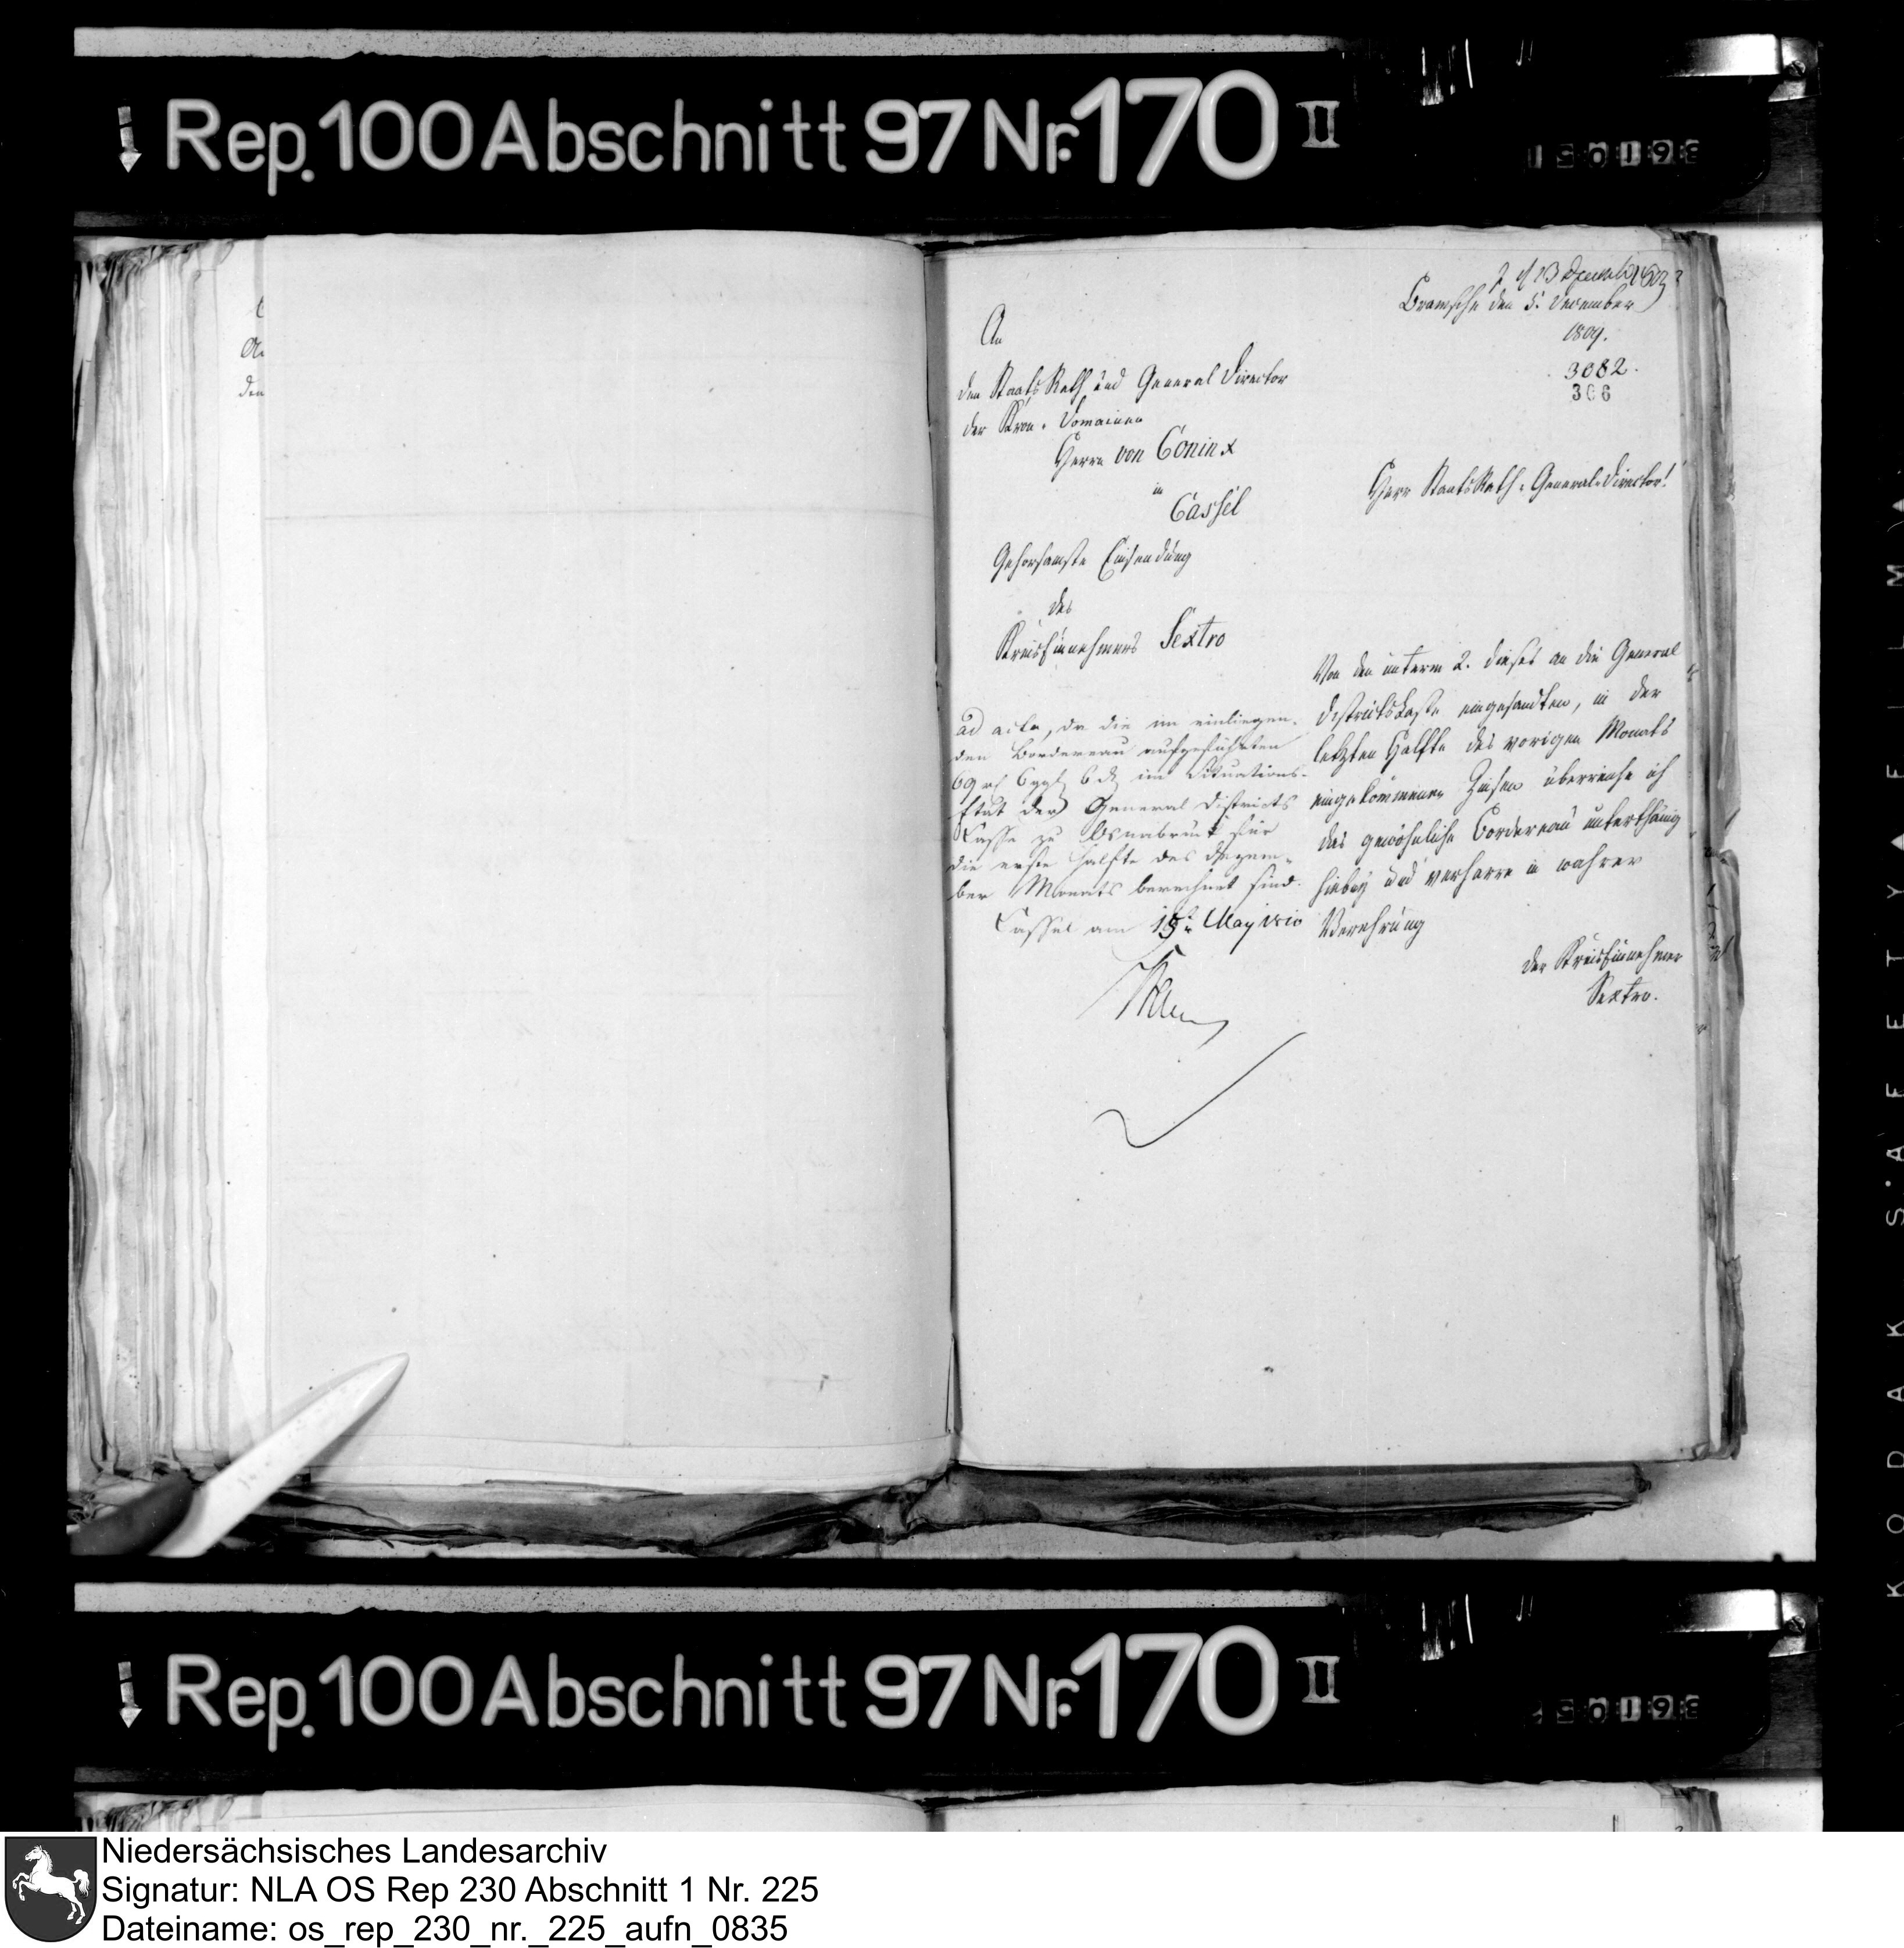 Rep. 100 Abschnitt 97 Nr. 170 II
13 Decemb 1809
Bramsche den 5. December
1809.
3082.
306
An
den StaatsRath und General Director
der Kron-Domainen
Herrn von Coninx
in
Cassel
Gehorsamste Einsendung
des
KreisEinnehmers Sextro
ad acta, da die im einliegen-
den Bordereau aufgeführten
69 rl 6 ggl 6 d im Situations-
Etat der General Districts
Casse zu Osnabrück für
die erste Hälfte des Dezem-
ber Monats berechnet sind.
Cassel am 15n May 1810
Herr StaatsRath-General-Director!
Von den unterm 2. dieses an die General
Districtskasse eingesandten, in der
letzten Hälfte des vorigen Monats
eingekommenen Zinsen überreiche ich
das gewöhnliche Bordereau unterthänig
hiebey und verharre in wahrer
Verehrung
der KreisEinnehmer
Sextro.
Rep. 100 Abschnitt 97 Nr. 170 II
KODAK SAFETY FILM
Niedersächsisches Landesarchiv
Signatur: NLA OS Rep 230 Abschnitt 1 Nr. 225
Dateiname: os_rep_230_nr._225_aufn_0835